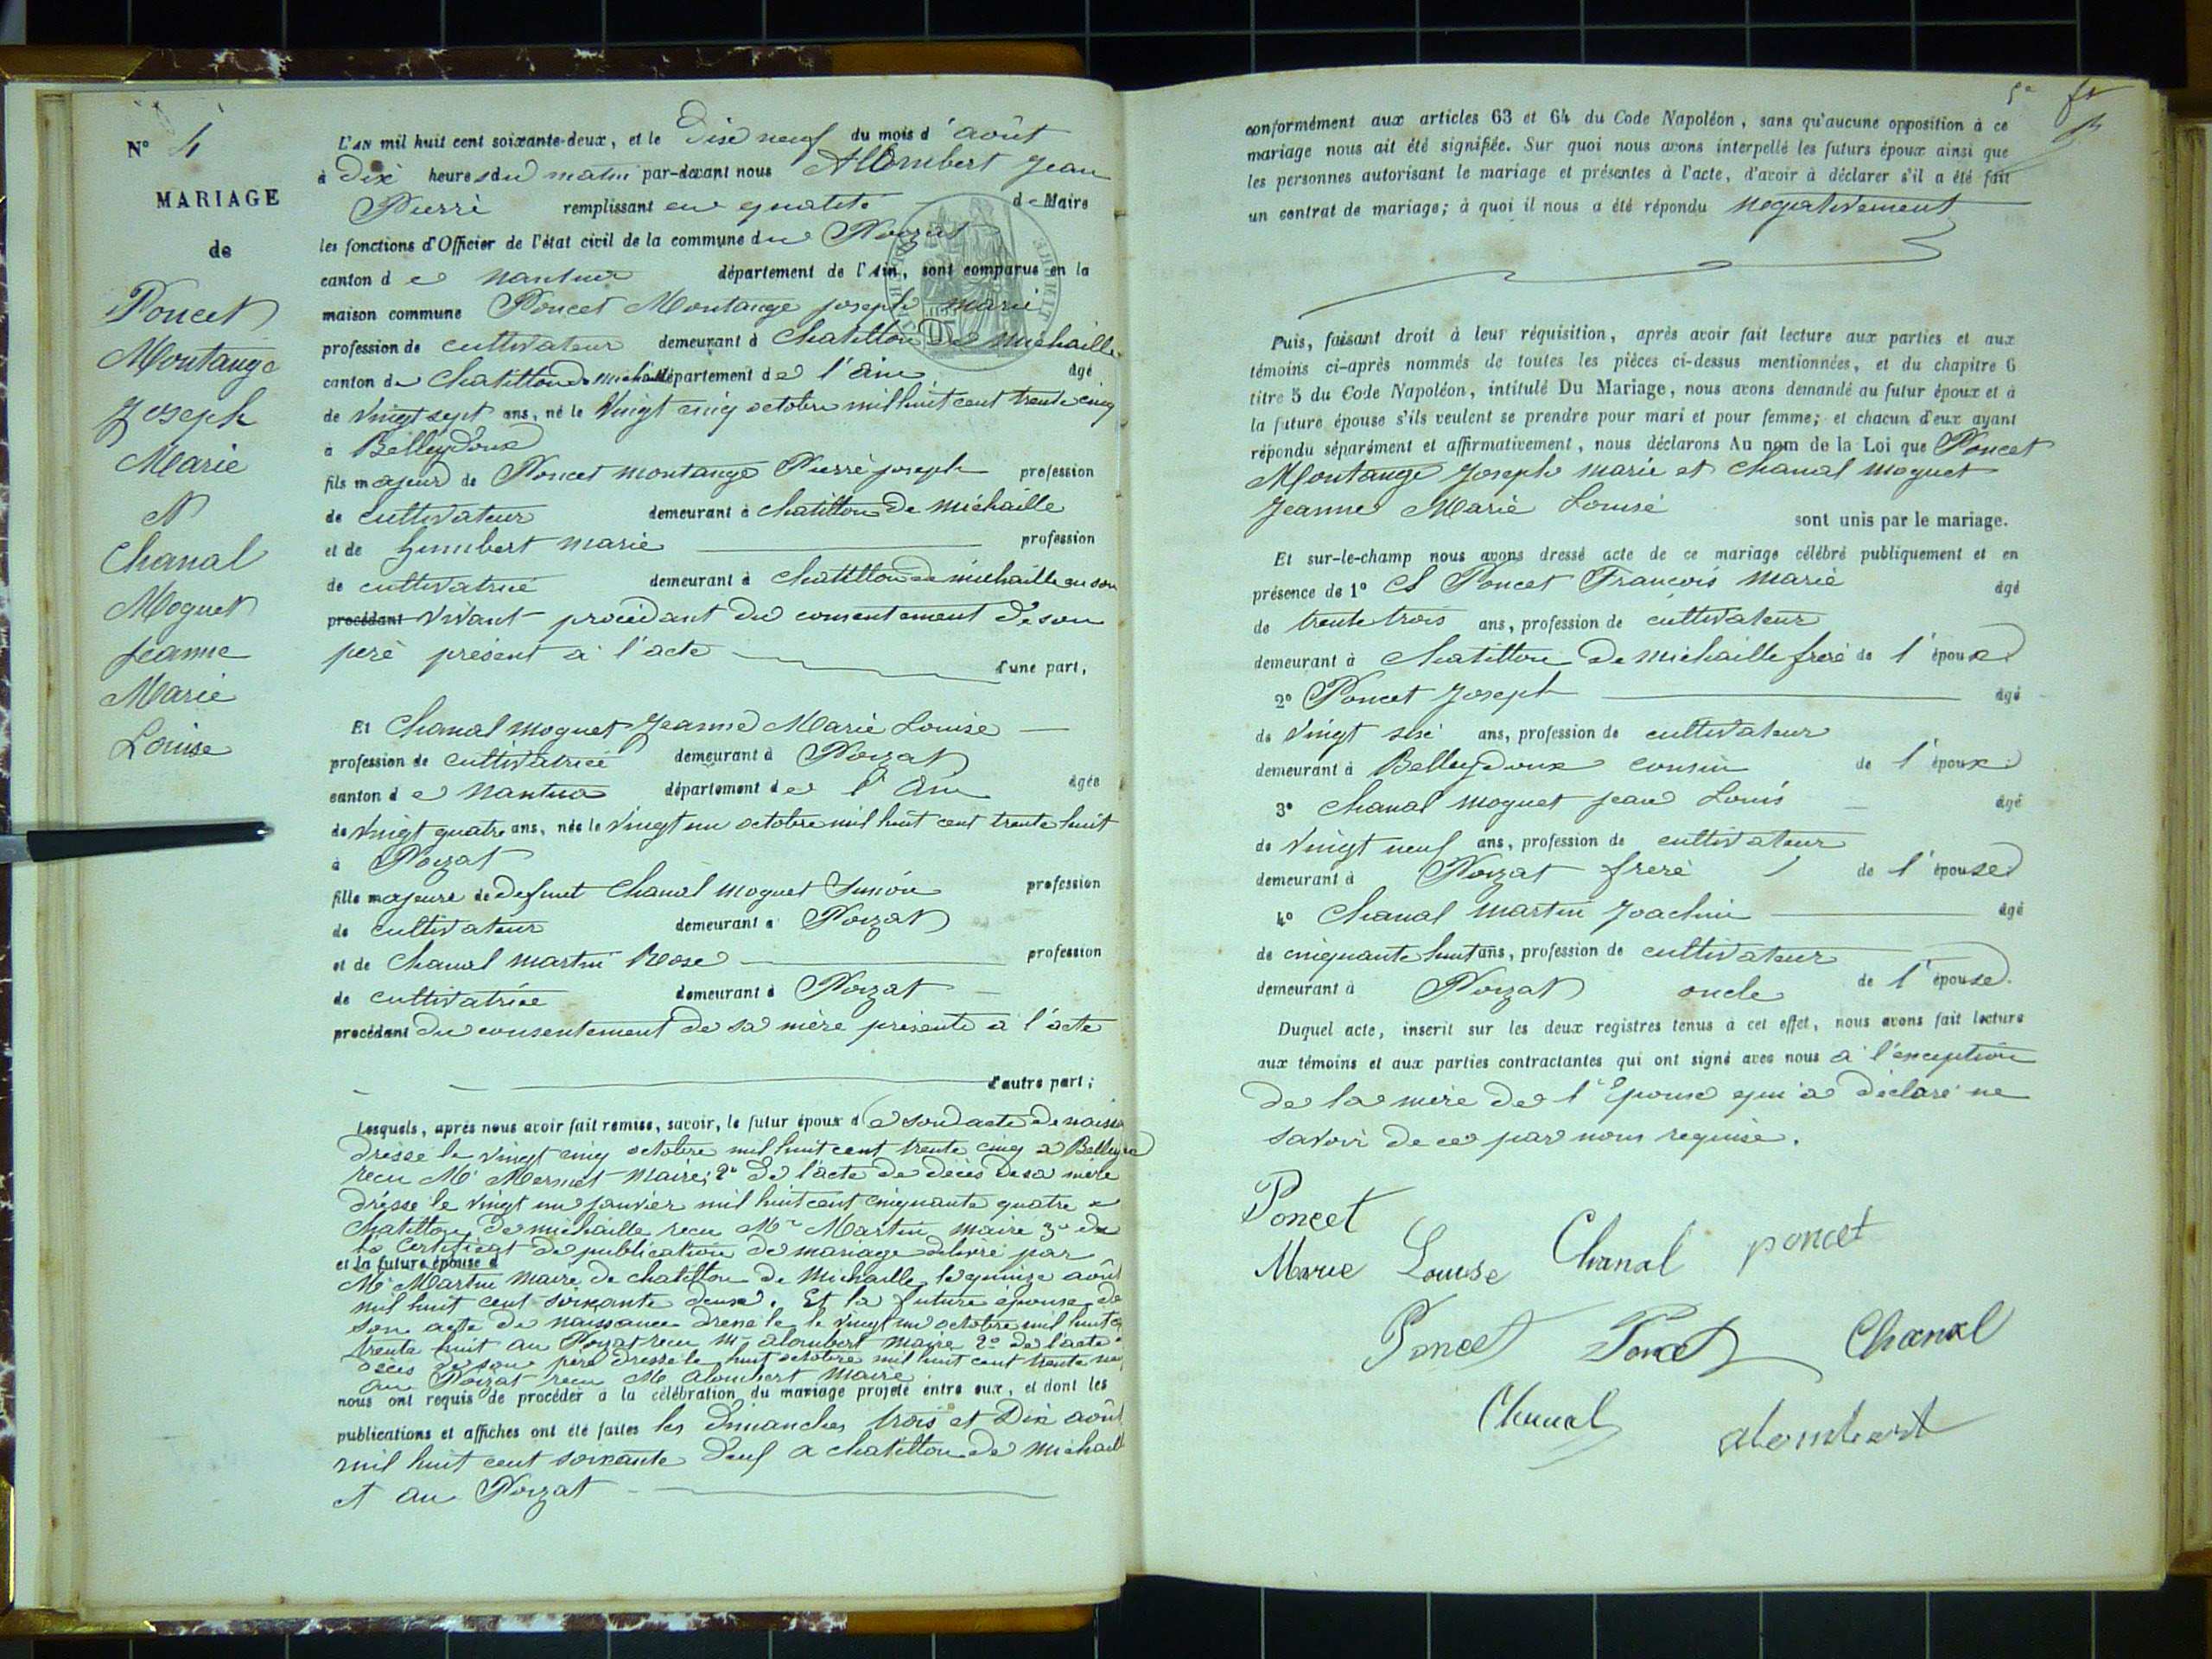 N° 4
MARIAGE
de
Poncet
Montange
Joseph
Marie
et
Chanal
Moguet
Jeanne
Marie
Louise
L'AN mil huit cent soixante-deux, et le Dix neuf du mois d'août
à Dix heures du matin par-devant nous Allombert Jean
Pierre remplissant en qualité de Maire
les fonctions d'Officier de l'état civil de la commune du Poizat
canton de nantua département de l'Ain, sont comparus en la
maison commune Poncet Montange joseph marie
profession de cultivateur demeurant à Chatillon De michaille
canton de Chatillon de michaille département de l'ain âgé
de Vingt sept ans, né le Vingt cinq octobre mil huit cent trente cinq
à Belleydoux
fils majeur de Poncet montange Pierre joseph profession
de cultivateur demeurant à chatillon De michaille
et de humbert marie profession
de cultivatrice demeurant à chatillon de michaille en son
procédant vivant procédant du consentement de son
père présent à l'acte d'une part,
Et Chanal moguet Jeanne Marie Louise
profession de cultivatrice demeurant à Poizat
canton de Nantua département de l'Ain âgée
de Vingt quatre ans, née le Vingt un octobre mil huit cent trente huit
à Poizat
fille majeure de defunt Chanal moguet Simon profession
de cultivateur demeurant à Poizat
et de Chanal martin Rose profession
de cultivatrice demeurant à Poizat
procédant du consentement de sa mère présente à l'acte
d'autre part;
Lesquels, après nous avoir fait remise, savoir, le futur époux de son acte de naiss
Dressé le vingt cinq octobre mil huit cent trente cinq a Belley
recu Mr Mermet Maire; 2° De l'acte de décès de sa mere
dressé le vingt un janvier mil huit cent cinquante quatre a
Chatillon De michaille recu Mr Martin maire 3° de
la Certificat de publication de mariage delivré par
et la future épouse d
Mr Martin Maire de chatillon de Michaille le quinze août
mil huit cent soixante deux. Et la future épouse de
son acte de naissance dressé le le vingt un octobre mil huit c
trente huit au Poizat recu Mr alombert maire 2° de l'acte
décès de son pere dressé le huit octobre mil huit cent trente ne
au Poizat recu Mr alombert Maire
nous ont requis de procéder à la célébration du mariage projeté entre eux, et dont les
publications et affiches ont été faites les Dimanches trois et Dix août
mil huit cent soixante Deux a chatillon de Michaill
et au Poizat
5e
conformément aux articles 63 et 64 du Code Napoléon, sans qu'aucune opposition à ce
mariage nous ait été signifiée. Sur quoi nous avons interpellé les futurs époux ainsi que
les personnes autorisant le mariage et présentes à l'acte, d'avoir à déclarer s'il a été fait
un contrat de mariage; à quoi il nous a été répondu negativement
Puis, faisant droit à leur réquisition, après avoir fait lecture aux parties et aux
témoins ci-après nommés de toutes les pièces ci-dessus mentionnées, et du chapitre 6
titre 5 du Code Napoléon, intitulé Du Mariage, nous avons demandé au futur époux et à
la future épouse s'ils veulent se prendre pour mari et pour femme; et chacun d'eux ayant
répondu séparément et affirmativement, nous déclarons Au nom de la Loi que Poncet
Montange Joseph marie et Chanal moguet
Jeanne Marie Louise sont unis par le mariage.
Et sur-le-champ nous avons dressé acte de ce mariage célébré publiquement et en
présence de 1° Poncet Francois Marie âgé
de trente trois ans, profession de cultivateur
demeurant à Chatillon De Michaille frere de l'époux
2° Poncet Joseph âgé
de Vingt six ans, profession de cultivateur
demeurant à Belleydoux cousin de l'époux
3° Chanal moguet jean Louis âgé
de Vingt neuf ans, profession de cultivateur
demeurant à Poizat frere de l'épouse
4° Chanal martin Joachim âgé
de cinquante huit ans, profession de cultivateur
demeurant à Poizat oncle de l'épouse.
Duquel acte, inscrit sur les deux registres tenus à cet effet, nous avons fait lecture
aux témoins et aux parties contractantes qui ont signé avec nous à l'exception
de la mère de l'Epouse qui a déclaré ne
savoir de ce par nous requise.
Poncet
Marie Louise Chanal poncet
Poncet Poncet Chanal
Chanal alombert